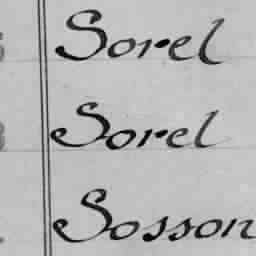 Sorel
Sorel
Sosson